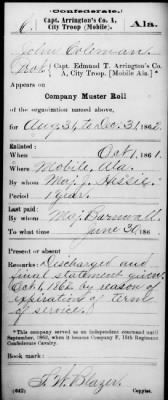 (Confederate.)
Capt. Arrington's Co. A,
City Troop (Mobile).
Ala.
John Coleman
Capt. Edmund T. Arrington's Co.
A, City Troop. [Mobile Ala.]
Appears on
Company Muster Roll
of the organization named above,
for Aug 31, to Dec. 31, 1862.
Enlisted:
When Oct 1, 1861.
Where Mobile, Ala.
By whom Maj. J. Hessee
Period 1 year
Last paid:
By whom Maj. Barnwall
To what time June 30, 186
Present or absent
Remarks: Discharged and
final statement given
Oct. 1, 1862 by reason of
expiration of term
of service.
*This company served as an independent command until
September, 1863, when it became Company F, 15th Regiment
Confederate Cavalry.
Book mark:
(642)
Copyist.